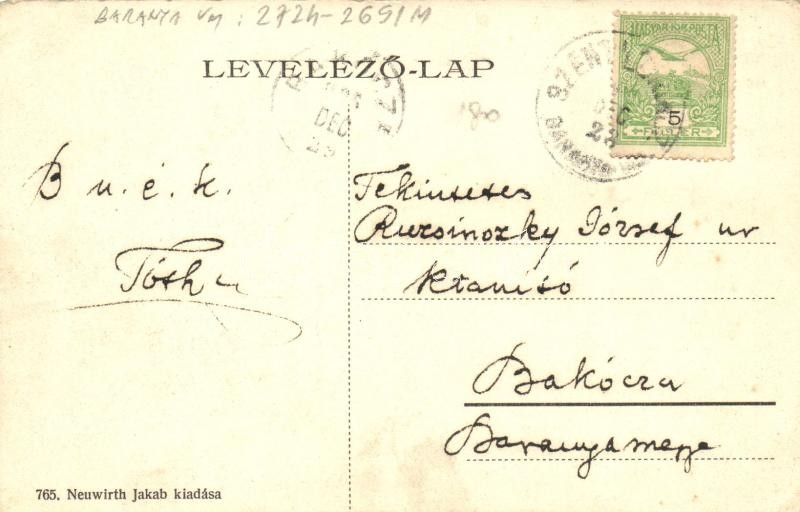 BARANYA VM: 2724-2691/M
LEVELEZŐ-LAP
MAGYAR KIR. POSTA
5
FILLÉR
DEC
DEC
180
B u. é. k.
Tóth
Tekintetes
Ruzsinozky József ur
Ktanitó
Bakócza
Baranyamegye
765. Neuwirth Jakab kiadása